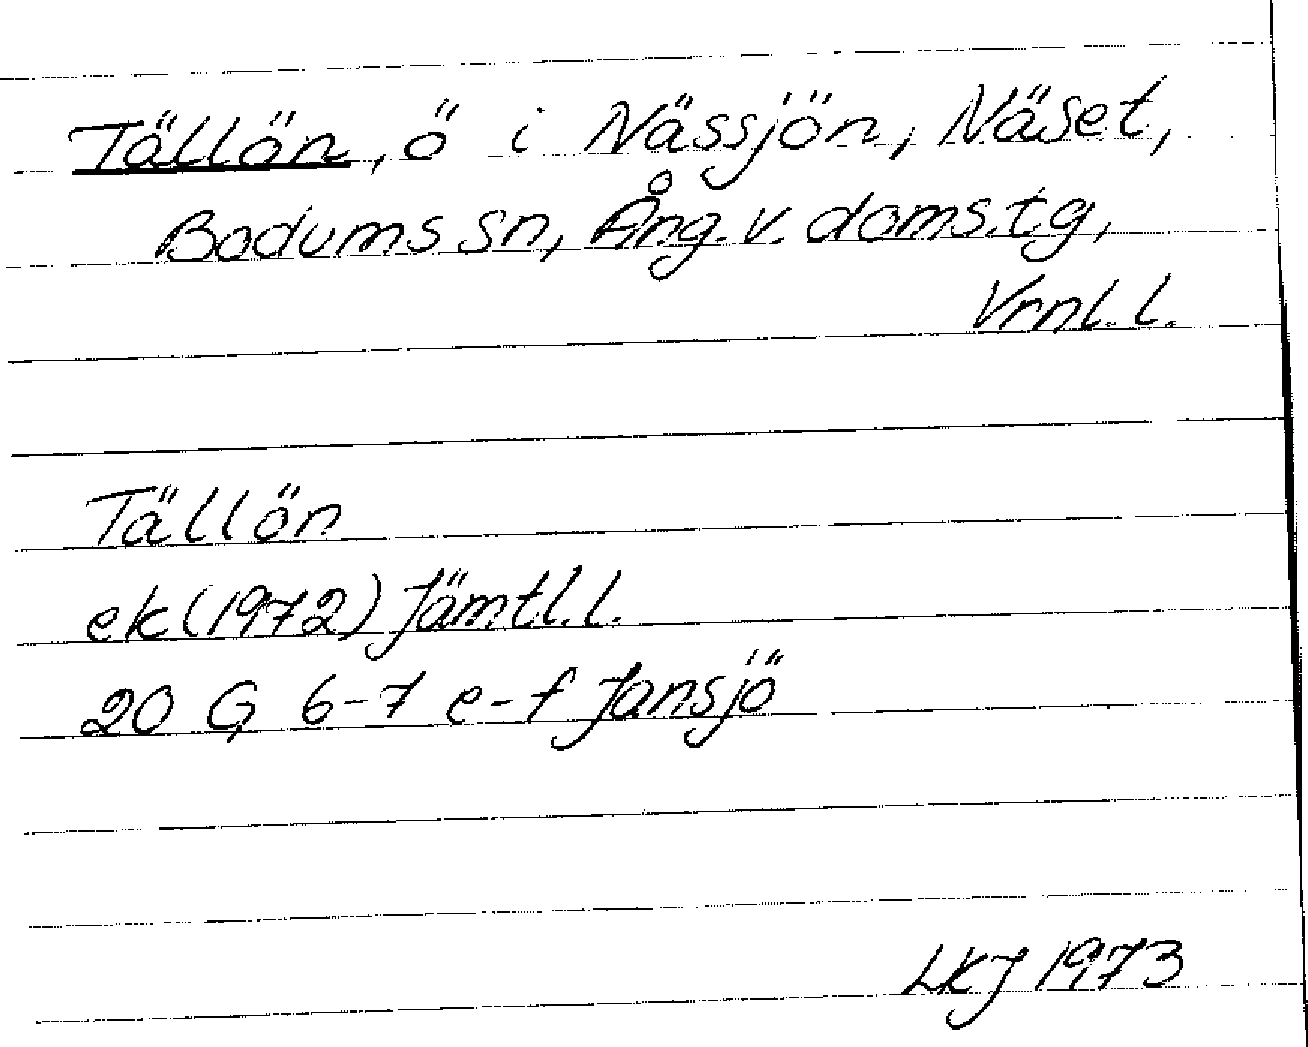 Tällön, ö i Nässjön, Näset,
Bodums sn, Ång. v. doms. tg,
Vrnl. l.
Tällön
ek (1972) Jämtl. l.
20 G 6-7 e-f Jansjö
LKJ 1973